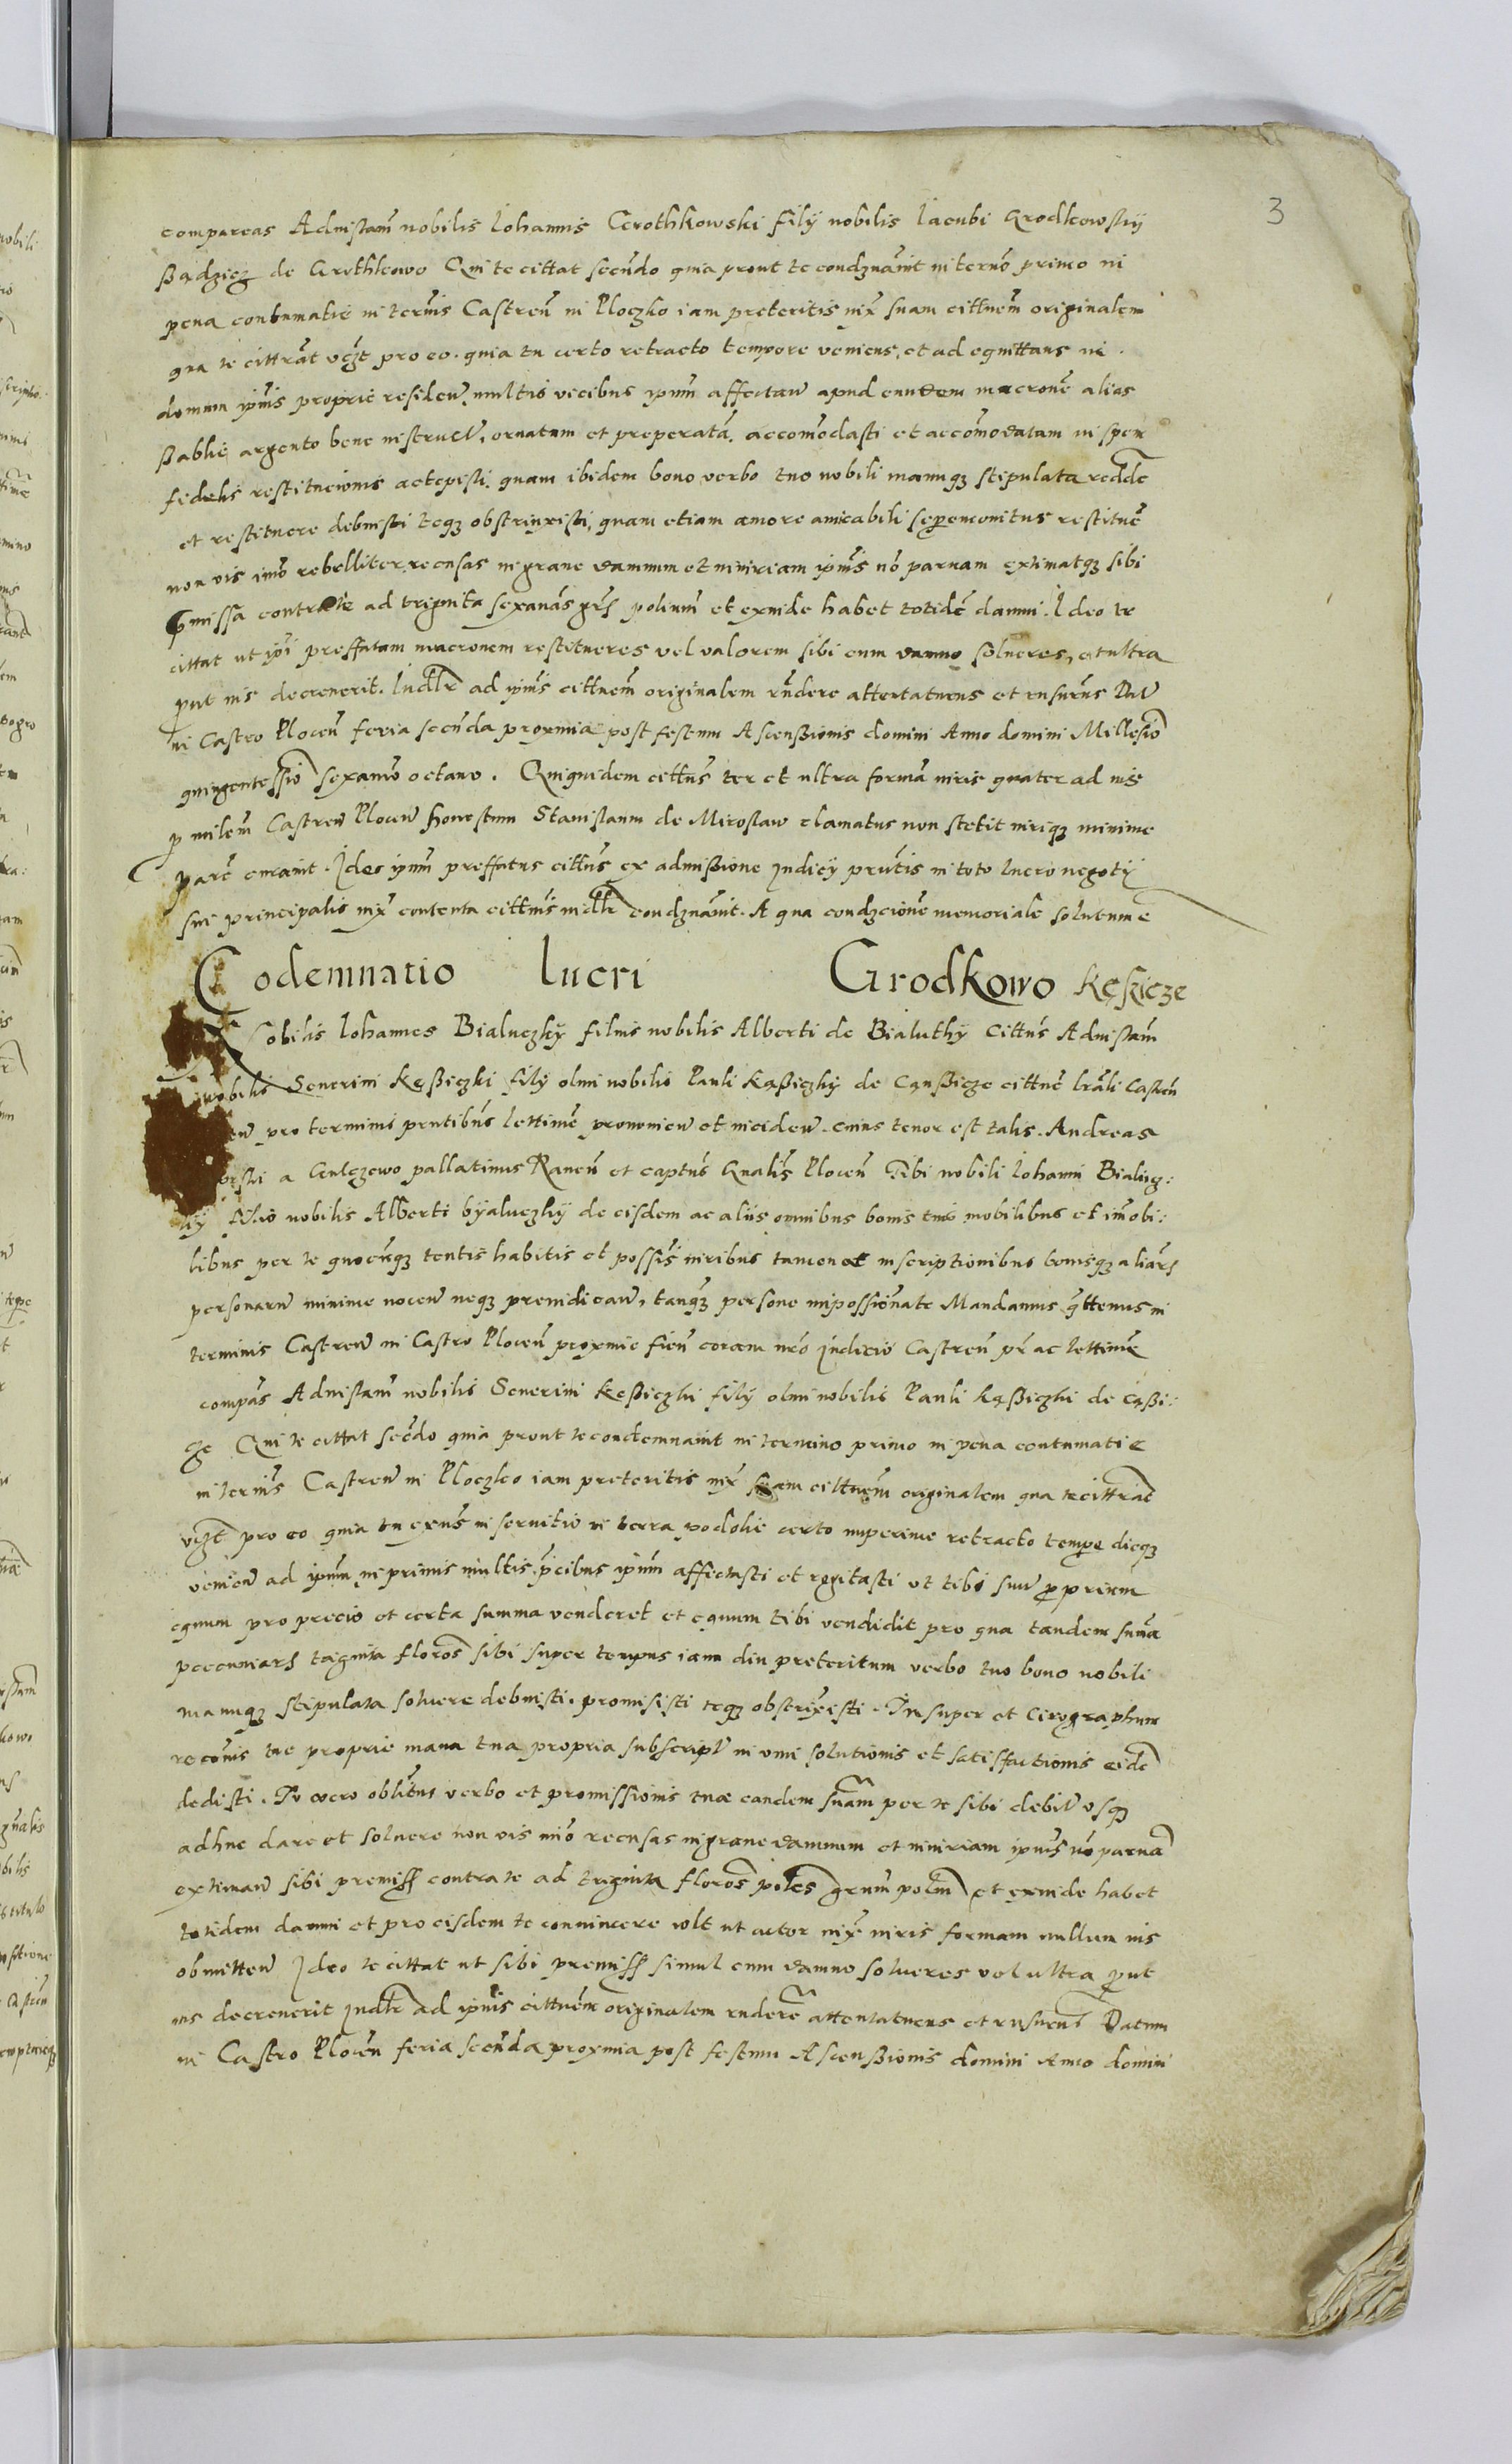 3
compareas Adinstam̄ nobilis Iohannis Crothkowski filij nobilis Iacubi Grodkowskij
Badzicz de Grothkowo Qui te cittat secn̄do quia prout te condznāuit in tern̄o primo in
pena contumatie in termīs Castren̄ in Ploczko iam preteritis iux̄ suam cittnem̄ originalem
qua te cittrāt vcꝫt pro eo. quia tu certo retracto tempore veniens, et ad equittans in
domum ipiūs proprie residen̄. multis vicibus ipum̄ affectan̄ apud eundem macronē alias
Bablie argento bene instructū, ornatum et preperatā. accomōdasti et accōmodatam in spem
fidelis restitucionis accepisti. quam ibidem bono verbo tuo nobili manuqꝫ stipulata reddē
et restituere debuisti teqꝫ obstrinxisti, quam etiam amore amicabili sepemonitus restituē
non vis imō rebelliter recusas in graue damnum et iniuriam ipiūs nō paruam extimatqꝫ sibi
pmissa contra te ad triginta sexanās grs̄ polium̄ et exinde habet totidē damni. Ideo te
cittat ut ipī preffatam macronem restitueres vel valorem sibi cum damno solueres, et ultra
put ius decreuerit. Iudlr̄ ad ipiūs cittnem̄ originalem rn̄dere attentaturus et rusurūs Datū
in Castro Plocen̄ feria secn̄da proxmia post festum Ascensionis domini Anno domini Millesiō
quingentessiō sexamō octauo. Quiquidem cittūs ter et ultra formā iuris quater ad iūs
p milem̄ Castren̄ Plocen̄ honestum Stanislaum de Miroslaw clamatus non stetit iuriqꝫ minime
parē curauit. Ideo ipum̄ preffatus cittūs ex admissione Iudicij prn̄tis in toto lucro negotij
sui principalis iux̄ contenta cittnīs iudlr̄ condznāuit. A qua condzcionē memoriale solutum ē
Codemnatio lucri Grodkowo Kęsicze
Nobilis Iohannes Bialuczkÿ filius nobilis Alberti de Bialuthÿ Cittūs Adinstam̄
nobilis Seuerini Kęßiczki filij olim nobilis Pauli Kąßiczkÿ de Cąnßicze cittnē lrāli Castren̄
pro terminis prn̄tibus lettimē prononien̄ et inciden̄. cuius tenor est talis. Andreas
a Gulczewo pallatinus Rauen̄ et captūs Gnalīs Plocen̄ Tibi nobili Iohanni Bialucz:
kij filio nobilis Alberti bÿaluczkÿ de eisdem ac aliis omnibus bonis tuis mobilibus et im̄obi:
libus per te quocnqꝫ tentis habitis et possīs iuribus tamen et inscriptionibus bonisqꝫ aliar̄
personarn̄ minime nocen̄ neqꝫ preiudican̄, tanqꝫ persone impossionāte Mandamus q̄ttenus in
terminis Castren̄ in Castro Plocen̄ proxmie fien̄ coram nrō Iudicio Castren̄ pr̄ ac lettimē
compās Adinstam̄ nobilis Seuerini Keßiczki filij olim nobilis Pauli Kąßiczki de Cąßi:
cze Qui te cittat secd̄o quia prout te condemnauit in termino primo in pena contumatie
in termīs Castren̄ in Ploczko iam preteritis iux̄ suam cittnem̄ originalem qua te cittrāt
vcꝫt pro eo quia tu exn̄s in seruitio in terra podolie certo nuperime retracto tempe dieqꝫ
venien̄ ad ipum̄ in primis multis pcibus ipum̄ affectasti et rogitasti vt tibi suū proprium
equum pro precio et certa summa venderet et equum tibi vendidit pro qua tandem sumā
pecuniar̄ triginta florōs sibi super tempus iam diu preteritum verbo tuo bono nobili
manuqꝫ stipulata soluere debuisti. promisisti teqꝫ obstrixisti. Insuper et Cirographum
recōnis tue proprie manu tua propria subscriptū in vim solutionis et satisfactionis eidē
dedisti. Tu vero oblitus verbo et promissionis tuæ eandem sum̄am per te sibi debitū vsqꝫ
adhuc dare et soluere non vis imō recusas in graue damnum et iniuriam ipiūs nō paruā
extiman̄ sibi premiss contra te ad triginta florōs poles grum̄ poln̄ et exinde habet
totidem damni et pro eisdem te conuincere volt ut actor iux̄ iuris formam nullum ius
obmitten̄ Ideo te cittat ut sibi premiss simul cum damno solueres vel ultra put
ius decreuerit Iudlr̄ ad ipiūs cittnēm originalem rndere attentaturus et rusurūs Datum
in Castro Plocen̄ feria secn̄da proxmia post festum Ascensionis domini Anno domini